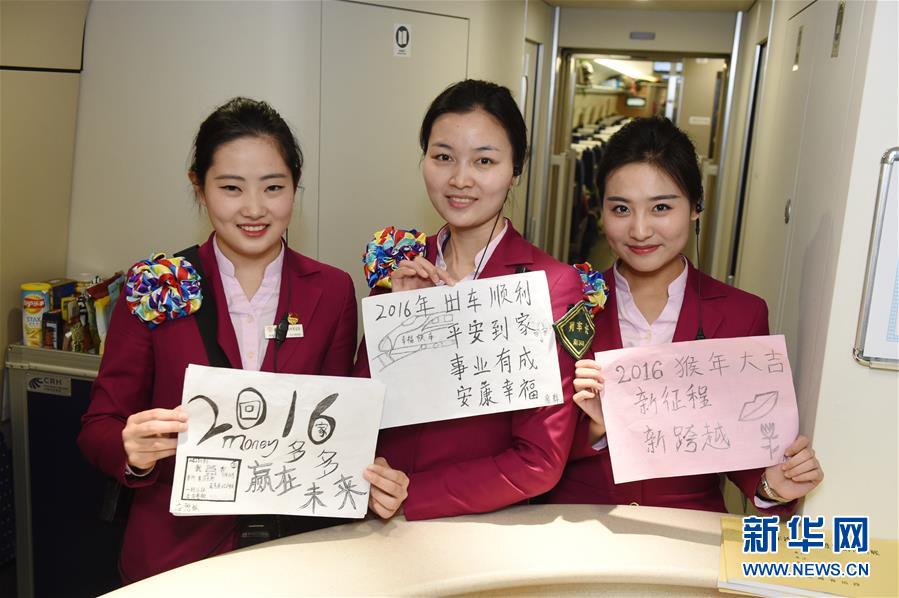 2016
回
家
money多多
赢在未来
2016年 出车顺利
平安到家
幸福快车
事业有成
安康幸福
2016 猴年大吉
新征程
新跨越
列车长
CRH
STAX
新华网
WWW.NEWS.CN